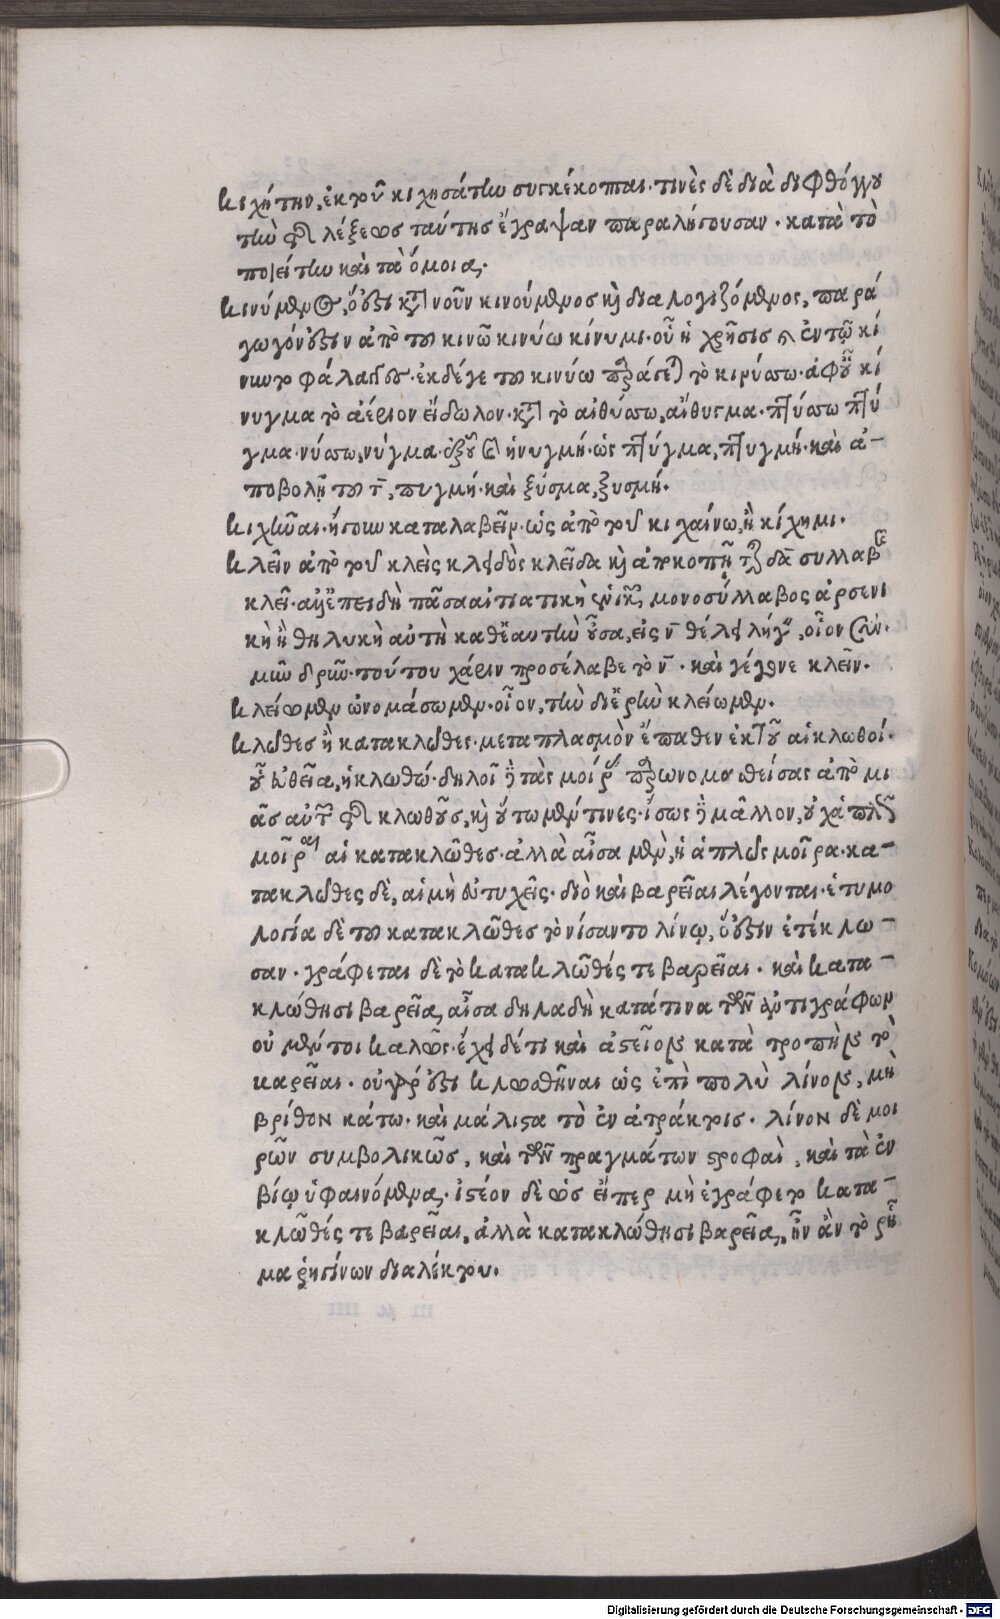 κιχήτην, ἐκ τοῦ κιχησάτην συγκέκοπται· τινὲς δὲ διὰ διφθόγγου
τὴν τῆς λέξεως ταύτης ἔγραψαν παραλήγουσαν· κατὰ τὸ
ποιείτην καὶ τὰ ὅμοια,·
κινύμενος, ὅ ἐστι κατὰ νοῦν κινούμενος καὶ διαλογιζόμενος, παρά
γωγόν ἐστιν ἀπὸ τοῦ κινῶ κινύω κίνυμι· οὗ ἡ χρῆσις καὶ ἐν τῷ κί
νυντο φάλαγγες· ἐκ δέ γε τοῦ κινύω παράγεται τὸ κινύσσω· ἀφ' οὗ κί
νυγμα τὸ ἀέριον εἴδωλον· κατὰ τὸ αἰθύσσω, αἴθυγμα· πτύσσω πτύ
γμα· νύσσω, νύγμα· ἐξ οὗ καὶ ἡ νυγμή· ὡς πτύγμα, πτυγμή· καὶ ἀ-
ποβολῇ τοῦ τ, πυγμή· καὶ ξύσμα, ξυσμή·
κιχῆναι· ἤγουν καταλαβεῖν· ὡς ἀπὸ τοῦ κιχαίνω, ἢ κίχημι·
κλεῖν ἀπὸ τοῦ κλεὶς κλειδὸς κλεῖδα καὶ ἀποκοπῇ τῆς δα συλλαβῆς
κλεῖ· ἀλλ' ἐπειδὴ πᾶσα αἰτιατικὴ ἑνικὴ μονοσύλλαβος ἀρσενι
κὴ ἢ θηλυκὴ αὐτὴ καθ' ἑαυτὴν οὖσα, εἰς ν θέλει λήγειν, οἷον
μῦν δρῦν· τούτου χάριν προσέλαβε τὸ ν· καὶ γέγονε κλεῖν·
κλείωμεν ὠνομάσωμεν· οἷον, τὴν διερὴν κλείωμεν·
κλῶθες ἢ κατακλῶθες· μεταπλασμὸν ἔπαθεν ἐκ τοῦ αἱ κλωθοί·
οὗ εὐθεῖα, ἡ κλωθώ· δηλοῖ δὲ τὰς μοίρας παρωνομασθείσας ἀπὸ μι
ᾶς αὐτῶν τῆς κλωθοῦς, καὶ οὕτω μέν τινες· ἴσως δὲ μᾶλλον, οὐχ ἁπλῶς
μοῖραι αἱ κατακλῶθες· ἀλλὰ αἶσα μὲν, ἡ ἁπλῶς μοῖρα· κα-
τακλῶθες δὲ, αἱ μὴ εὐτυχεῖς· διὸ καὶ βαρεῖαι λέγονται· ἐτυμο
λογία δὲ τοῦ κατακλῶθες τὸ νήσαντο λίνῳ, ὅ ἐστιν ἐπέκλω-
σαν· γράφεται δὲ τὸ κατακλῶθές τε βαρεῖαι· καὶ κατα-
κλώθησι βαρεῖα, αἶσα δηλαδὴ κατά τινα τῶν ἀντιγράφων
οὐ μέντοι καλῶς· ἔχει δέ τι καὶ ἀστεῖον κατὰ τροπὴν τὸ
βαρεῖαι· οὐ γάρ ἐστι κλωσθῆναι ὡς ἐπὶ πολὺ λίνον, μὴ
βρίθον κάτω· καὶ μάλιστα τὸ ἐν ἀτράκτοις· λίνον δὲ μοι
ρῶν συμβολικῶς, καὶ τῶν πραγμάτων στροφαὶ, καὶ τὰ ἐν
βίῳ ὑφαινόμενα,· ἰστέον δὲ ὡς εἴπερ μὴ ἐγράφετο κατα-
κλῶθές τε βαρεῖαι, ἀλλὰ κατακλώθησι βαρεῖα, ἦν ἂν τὸ ῥῆ
μα ῥηγίνων διαλέκτου·
Digitalisierung gefördert durch die Deutsche Forschungsgemeinschaft - DFG